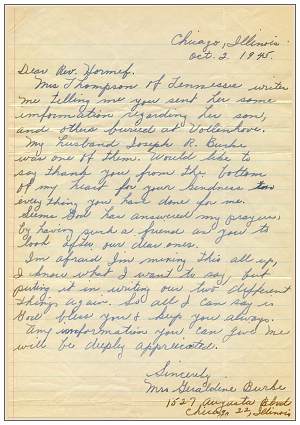 Chicago, Illinois.
Oct. 2 1945.
Dear Rev. Hormef.
Mrs Thompson of Tennessee writes
me telling me you sent her some
information regarding her son,
and others buried at Vollenhove.
My husband Joseph R. Burke
was one of them. Would like to
say thank you from the bottom
of my heart for your kindness
everything you have done for me.
Seems God has answered my prayers,
by having such a friend as you to
look after our dear ones.
I'm afraid I'm mixing this all up,
I know what I want to say but
putting it in writing are two different
things again. So all I can say is
God bless you & keep you always.
Any information you can give me
will be deeply appreciated.
Sincerely
Mrs Geraldine Burke
1527 Augusta Blvd
Chicago 22, Illinois